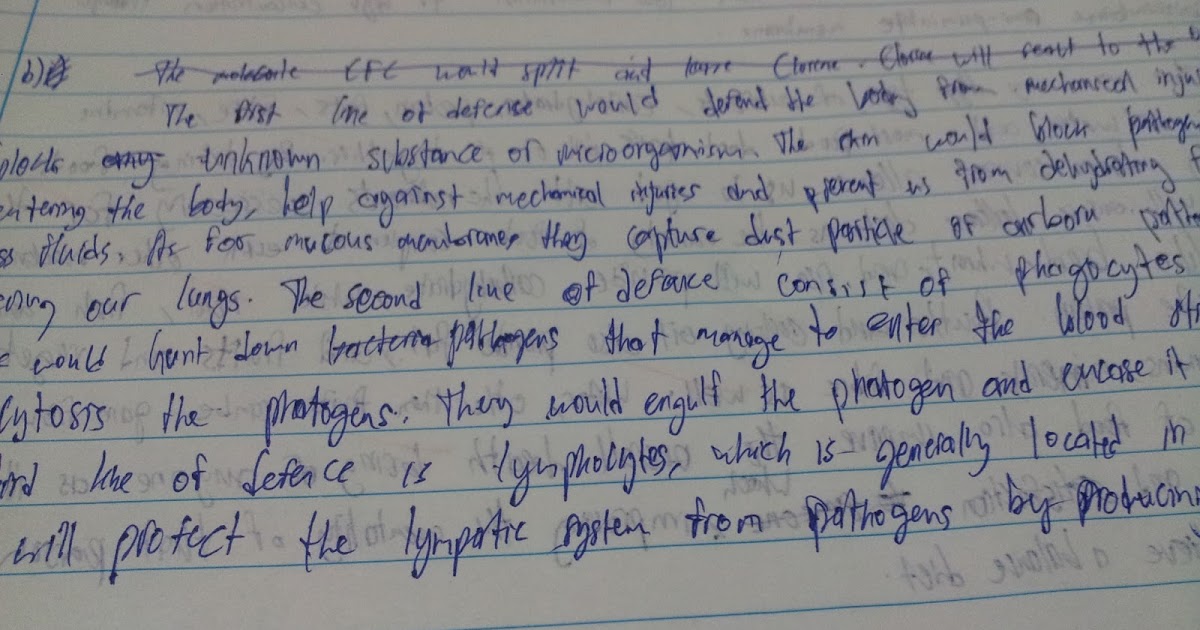 b) The molecule CFC would split and leave Clorene. Clorene will react to the
The first line of defence would defend the body from mechanical inju
unknown substance or microorganism. The skin would block pathogen
entering the body, help against mechanical injuries and prevent us from dehydrating
fluids. As for mucous membranes, they capture dust particle or carbon
our lungs. The second line of defence consist of phagocytes
would hunt down bacteria pathogens that manage to enter the blood
cytosis the phatogens. They would engulf the phatogen and encase it
line of defence is lympholytes, which is generally located in
will protect the lympatic system from pathogens by producin